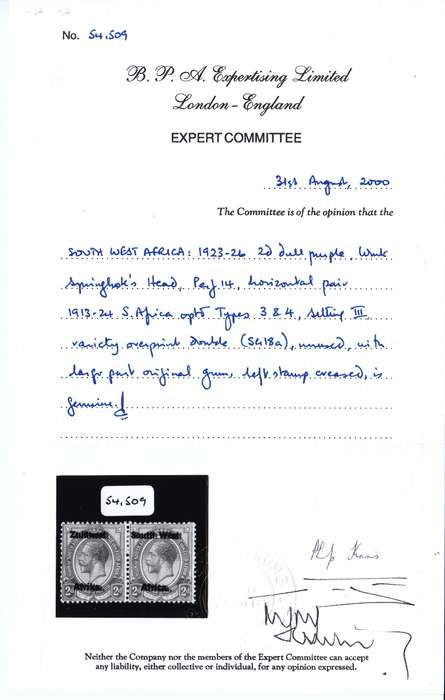 No. 54,509
B. P. A. Expertising Limited
London - England
EXPERT COMMITTEE
31st August, 2000
The Committee is of the opinion that the
SOUTH WEST AFRICA: 1923-26 2d dull purple, Wmk
Springbok's Head, Perf 14, horizontal pair
1913-24 S. Africa optd Types 3 & 4, setting III
variety overprint double (SG18a), unused, with
large part original gum, left stamp creased, is
genuine.
54,509
Zuidwest South West
Afrika. Africa.
Neither the Company nor the members of the Expert Committee can accept
any liability, either collective or individual, for any opinion expressed.